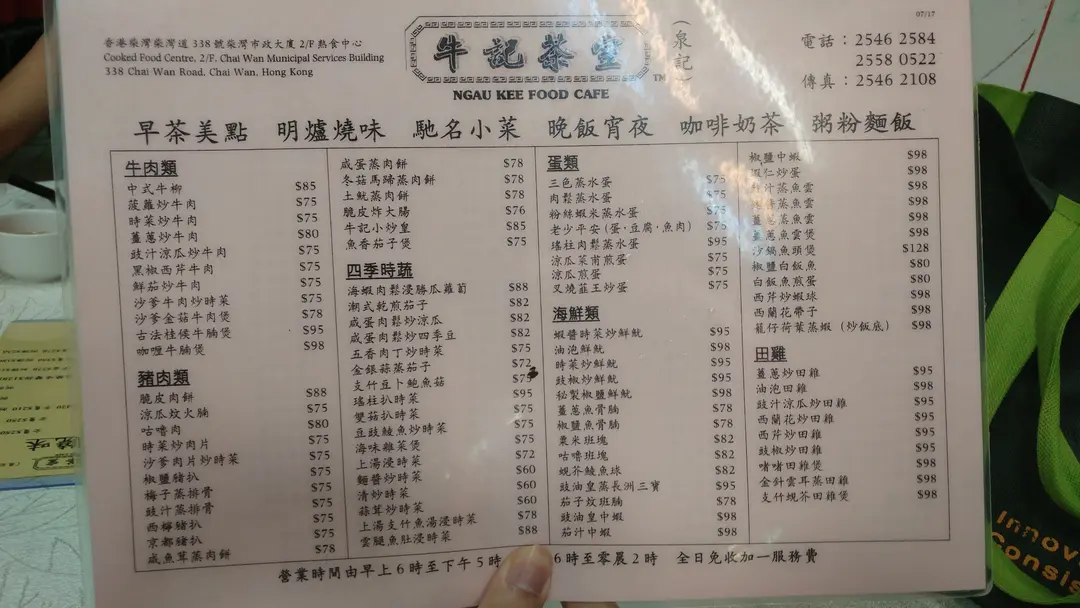 07/17
香港柴灣柴灣道 338 號柴灣市政大廈 2/F 熱食中心
Cooked Food Centre, 2/F, Chai Wan Municipal Services Building
338 Chai Wan Road, Chai Wan, Hong Kong
牛記茶室
(泉記)
TM
NGAU KEE FOOD CAFE
電話：2546 2584
2558 0522
傳真：2546 2108
早茶美點 明爐燒味 馳名小菜 晚飯宵夜 咖啡奶茶 粥粉麵飯
牛肉類
中式牛柳 $85
菠蘿炒牛肉 $75
時菜炒牛肉 $75
薑蔥炒牛肉 $80
豉汁涼瓜炒牛肉 $75
黑椒西芹牛肉 $75
鮮茄炒牛肉 $75
沙爹牛肉炒時菜 $75
沙爹金菇牛肉煲 $78
古法桂侯牛腩煲 $95
咖喱牛腩煲 $98
豬肉類
脆皮肉餅 $88
涼瓜炆火腩 $75
咕嚕肉 $80
時菜炒肉片 $75
沙爹肉片炒時菜 $75
椒鹽豬扒 $75
梅子蒸排骨 $75
豉汁蒸排骨 $75
西檸豬扒 $75
京都豬扒 $75
咸魚茸蒸肉餅 $78
咸蛋蒸肉餅 $78
冬菇馬蹄蒸肉餅 $78
土魷蒸肉餅 $78
脆皮炸大腸 $76
牛記小炒皇 $85
魚香茄子煲 $75
四季時蔬
海蝦肉鬆浸勝瓜蘿蔔 $88
潮式乾煎茄子 $82
咸蛋肉鬆炒涼瓜 $82
咸蛋肉鬆炒四季豆 $82
五香肉丁炒時菜 $75
金銀蒜蒸茄子 $72
支竹豆卜鮑魚菇 $75
瑤柱扒時菜 $95
雙菇扒時菜 $75
豆豉鯪魚炒時菜 $75
海味雜菜煲 $75
上湯浸時菜 $72
麵醬炒時菜 $60
清炒時菜 $60
蒜茸炒時菜 $60
上湯支竹魚湯浸時菜 $78
雲腿魚肚浸時菜 $88
蛋類
三色蒸水蛋 $75
肉鬆蒸水蛋 $75
粉絲蝦米蒸水蛋 $75
老少平安 (蛋，豆腐，魚肉) $75
瑤柱肉鬆蒸水蛋 $95
涼瓜菜甫煎蛋 $75
涼瓜煎蛋 $75
叉燒韮王炒蛋 $75
海鮮類
蝦醬時菜炒鮮魷 $95
油泡鮮魷 $98
時菜炒鮮魷 $95
豉椒炒鮮魷 $95
秘製椒鹽鮮魷 $98
薑蔥魚骨腩 $78
椒鹽魚骨腩 $78
粟米班塊 $82
咕嚕班塊 $82
蜆芥鯪魚球 $82
豉油皇蒸長洲三寶 $95
茄子炆班腩 $78
豉油皇中蝦 $98
茄汁中蝦 $98
椒鹽中蝦 $98
蝦仁炒蛋 $98
豉汁蒸魚雲 $98
蒸魚雲 $98
薑蔥蒸魚雲 $98
薑蔥魚雲煲 $98
沙鍋魚頭煲 $128
椒鹽白飯魚 $80
白飯魚煎蛋 $80
西芹炒蝦球 $98
西蘭花帶子 $98
籠仔荷葉蒸蝦 (炒飯底) $98
田雞
薑蔥炒田雞 $95
油泡田雞 $95
豉汁涼瓜炒田雞 $95
西蘭花炒田雞 $95
西芹炒田雞 $95
豉椒炒田雞 $95
啫啫田雞煲 $98
金針雲耳蒸田雞 $98
支竹蜆芥田雞煲 $98
營業時間由早上 6 時至下午 5 時 6 時至零晨 2 時 全日免收加一服務費
Innov
Consis